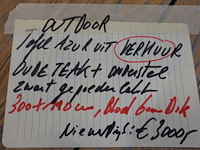 OUTDOOR
Tafel AZUR UIT VERHUUR
OUDE TEAK + onderstel
zwart gepoedercoat
300 x 110 cm, Blad 6 cm Dik
Nieuwprijs: € 3000,-